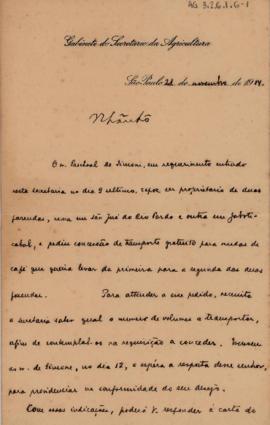 AG 3.2.6.1.6-1
Gabinete do Secretario da Agricultura
São Paulo 22 de novembro de 19
Nhãnhô
O sr. Paschoal de Simoni, em requerimento entrado
nesta secretaria no dia 9 ultimo, expoz ser proprietario de duas
fazendas, uma em São José do Rio Pardo e outra em Jaboti-
cabal, e pediu concessão de transporte gratuito para mudas de
café que queria levar da primeira para a segunda das duas
fazendas. Para attender a esse pedido, necessita
a secretaria saber qual o numero de volumes a transportar,
afim de contemplal-os na requisição a conceder. Escreveu
ao sr. de Simone, no dia 12, e espera a resposta desse senhor,
para providenciar na conformidade do seu desejo.
Com essas indicações, poderá V. responder á carta do